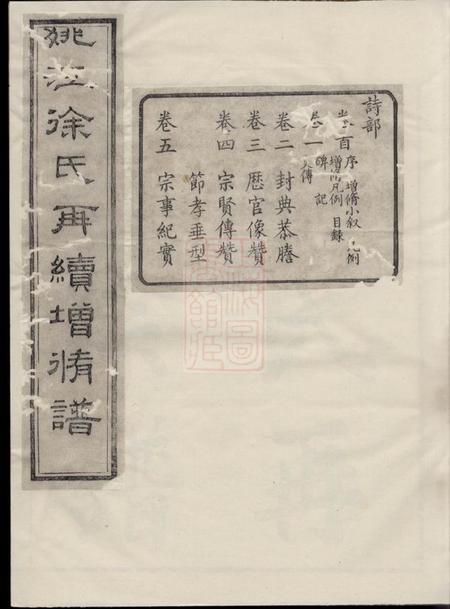 姚江徐氏再續增脩譜
詩部
卷首 序 增脩小敘 凡例
增脩凡例 目錄
卷一 碑記
大傳
卷二 封典恭謄
卷三 歷官像贊
卷四 宗賢傳贊
節孝垂型
卷五 宗事紀實